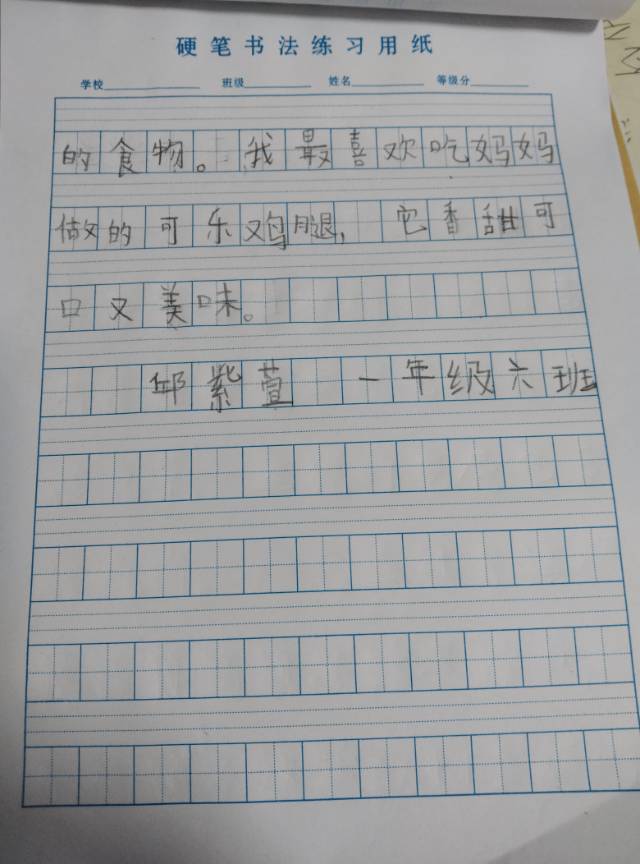 硬笔书法练习用纸
学校 班级 姓名 等级分
的食物。我最喜欢吃妈妈
做的可乐鸡腿，它香甜可
口又美味。
邱紫萱 一年级六班